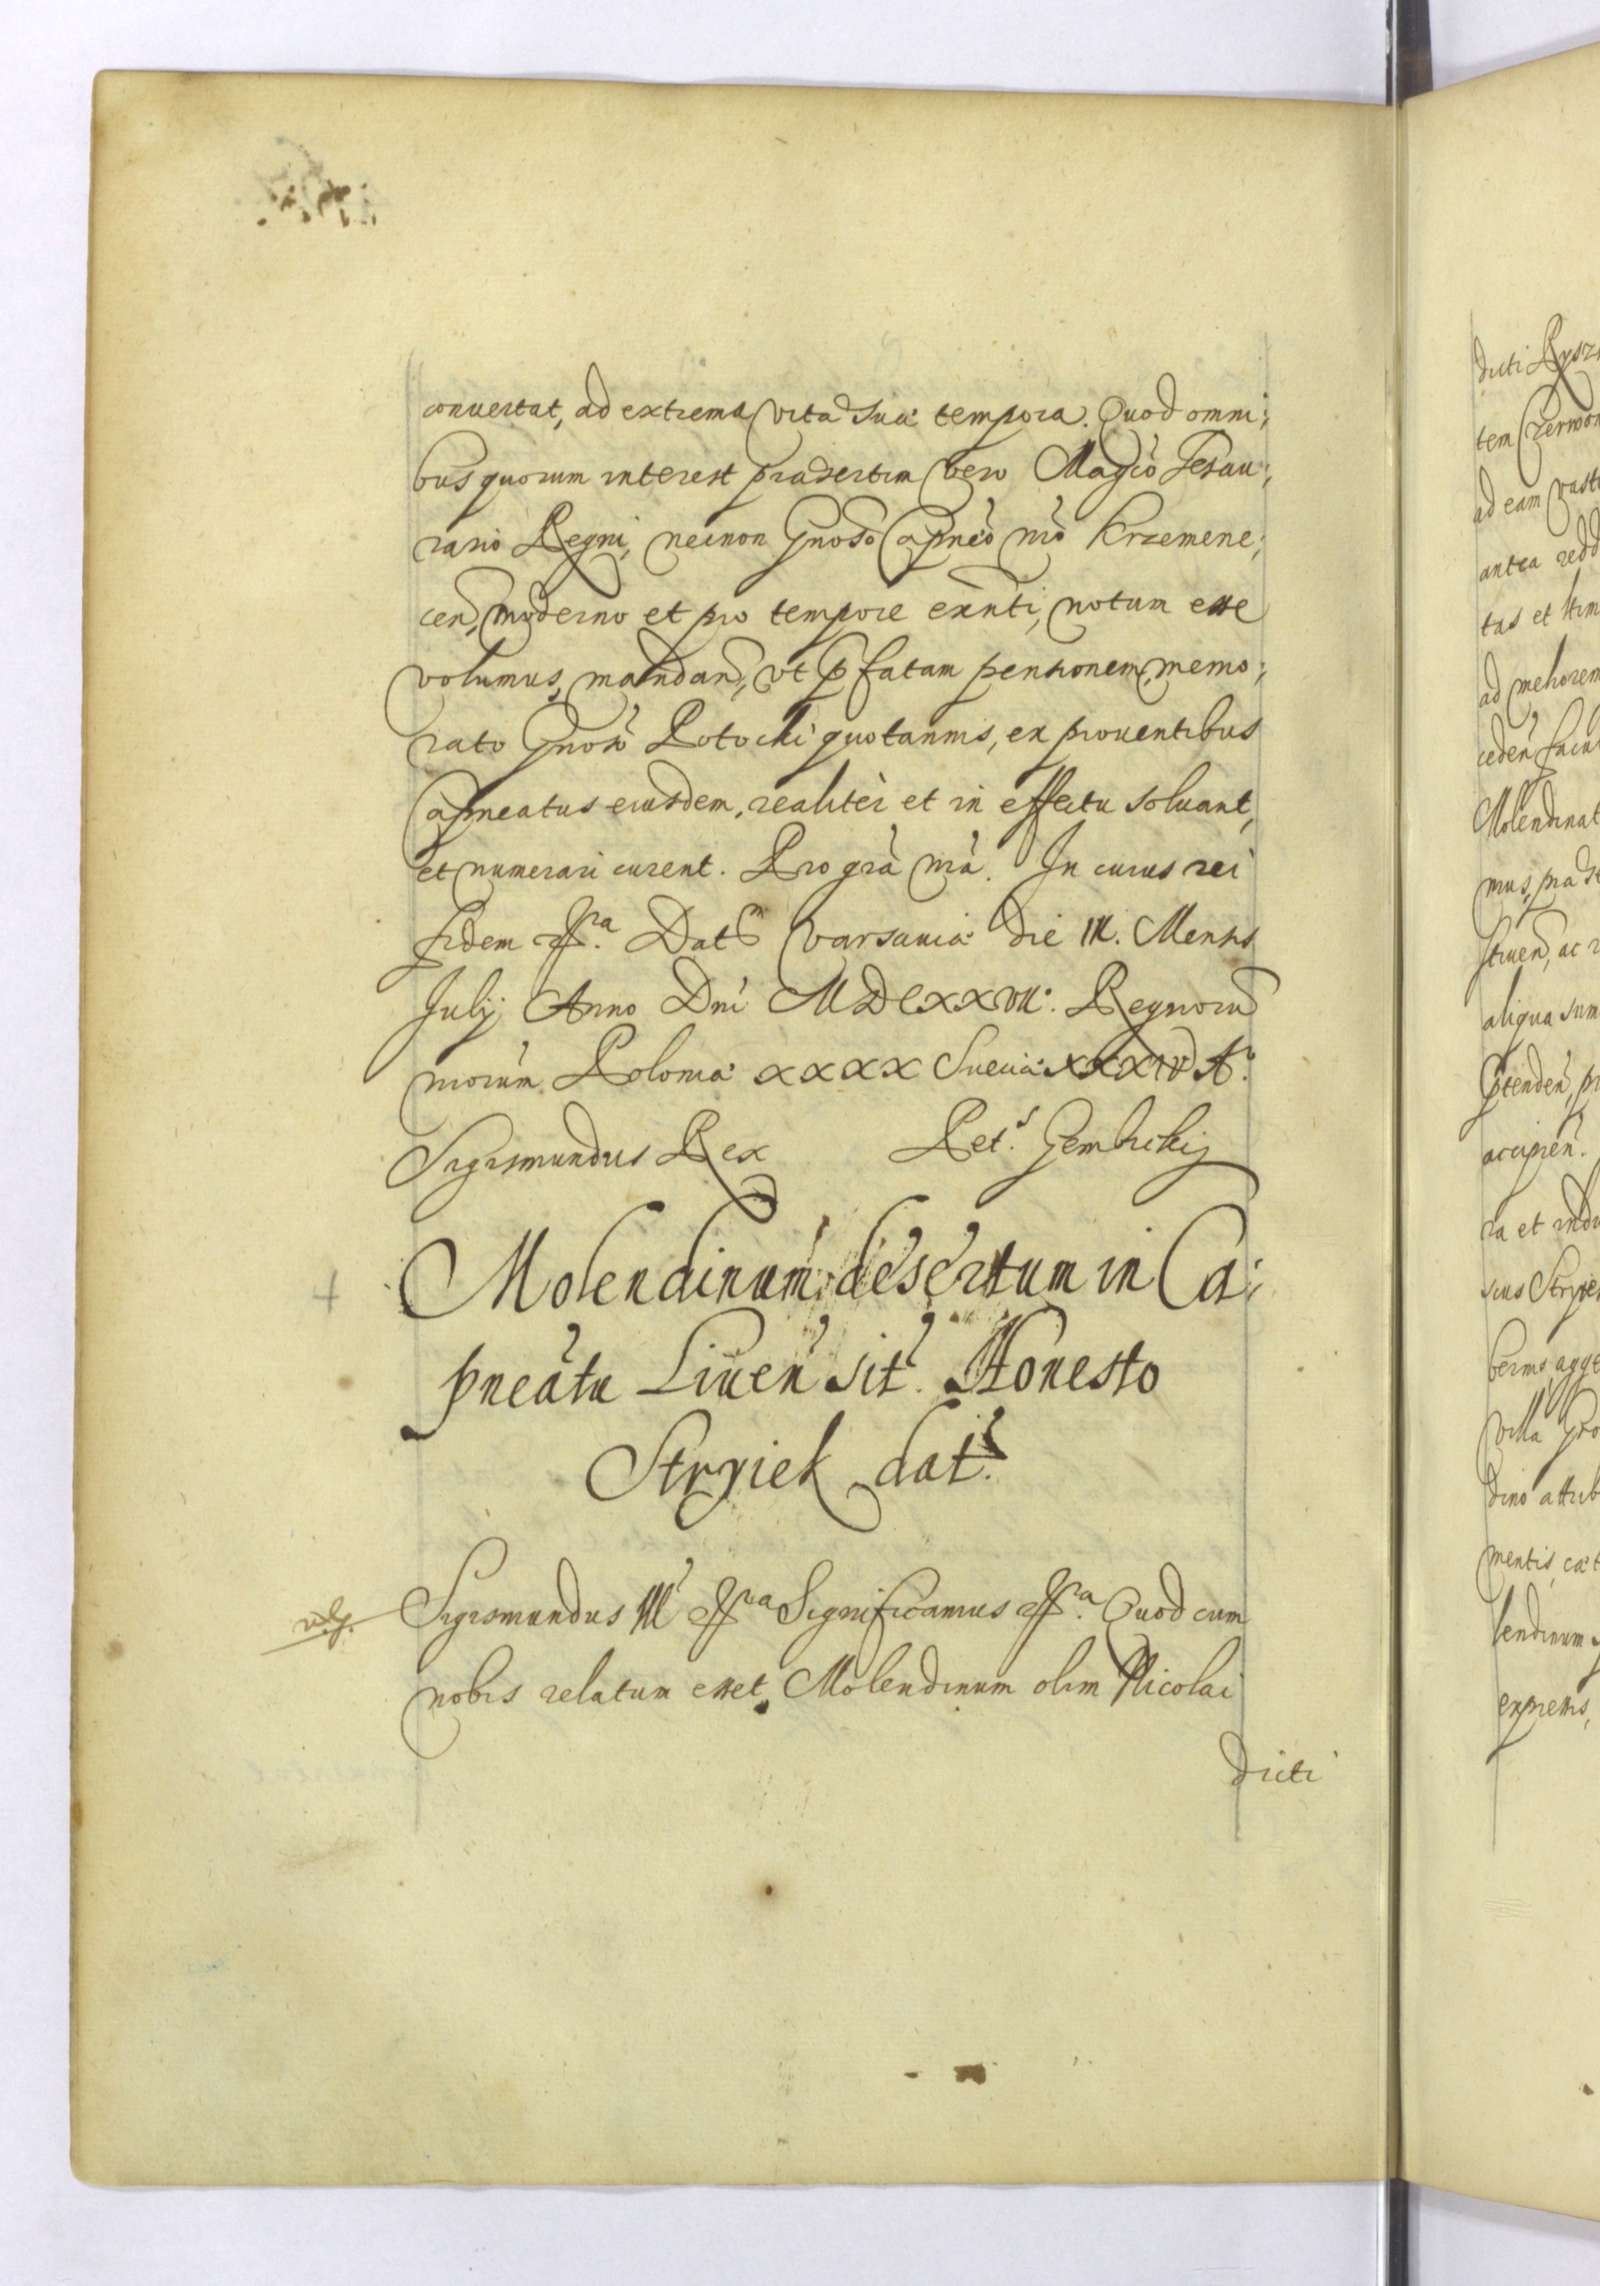 conuertat, ad extrema vitæ suæ tempora. Quod omni:
bus quorum interest præsertim vero Magco Tesau:
rario Regni, necnon Gnoso Capneo nro Krzemene:
cen, moderno et pro tempore exnti, notum esse
volumus, mandan, vt pfatam pensionem, memo:
rato Gnoso Potocki quotannis, ex prouentibus
Capneatus eiusdem, realiter et in effectu soluant,
et numerari curent. Pro gra nra. In cuius rei
fidem &ra. Datm Varsauiæ die III. Mensis
Julij Anno Dni MDCXXVII. Regnorum
nrorum Poloniæ XXXX Sueciæ XXXIV Ao.
Sigismundus Rex Pet.s Gembickij
+ Molendinum desertum in Ca:
pneatu Liuen sit. Honesto
Stryiek dat.
Sigismundus III &ra Significamus &ra. Quod cum
nobis relatum esset Molendinum olim Nicolai
dicti
dicti
tem
ad eam
antea
tas et
ad meliorem
ceden
Molendinat
mus,
struen, ac
aliqua
ptenden,
accipien.
ra et
villa
dino
mentis,
lendinum
expressis,